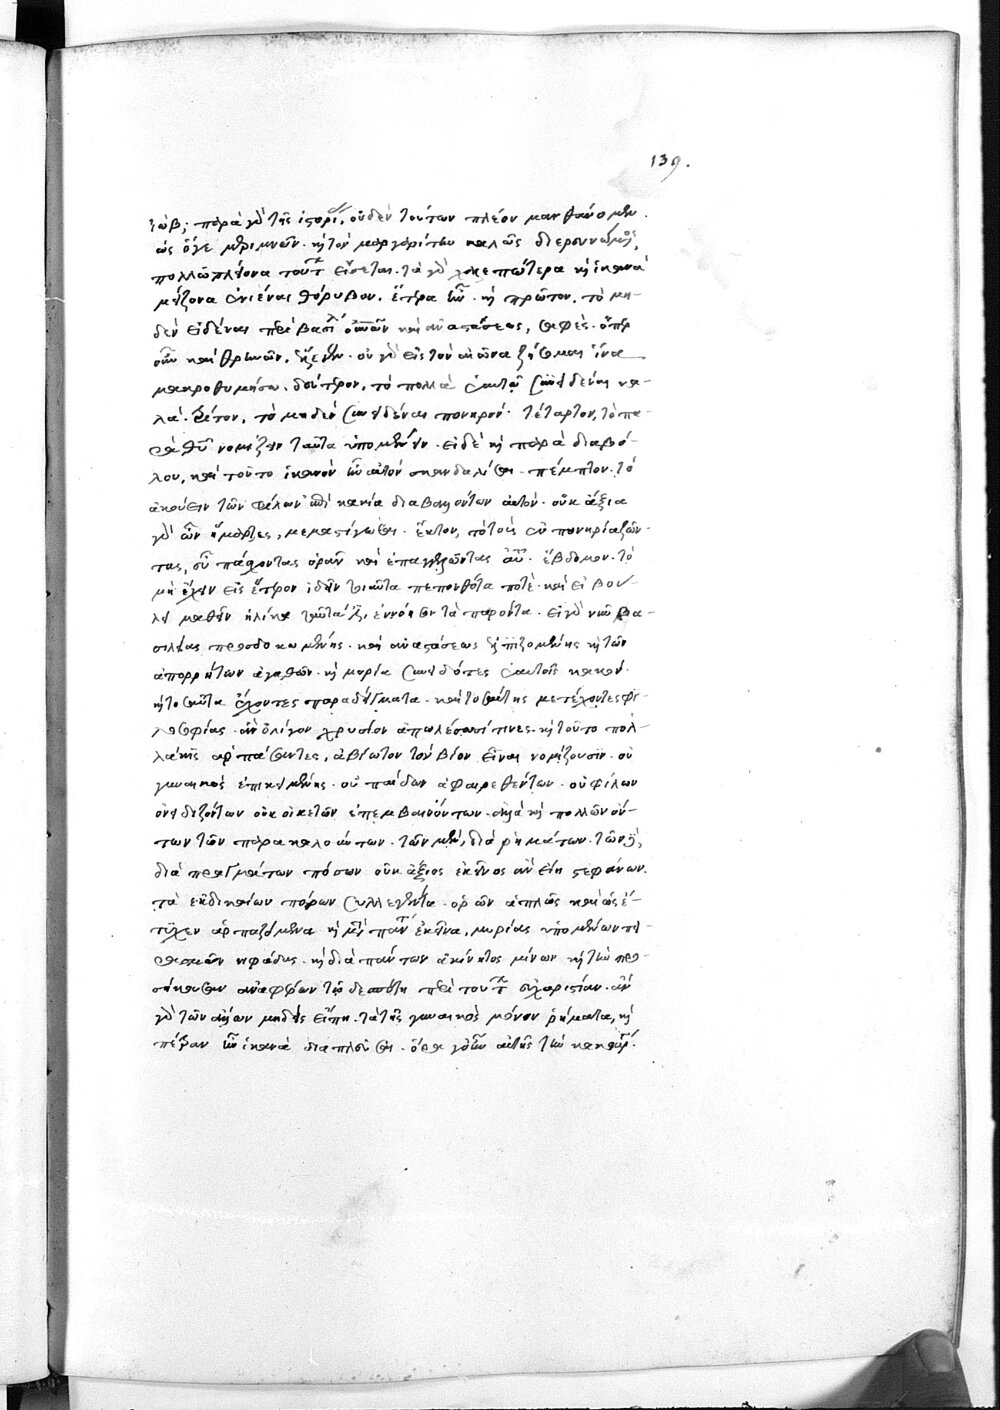 139.
ἰώβ; παρὰ γὰρ τῆς ἱστορί οὐδὲν τούτων πλέον μανθάνομεν.
ὡς ὅγε μεριμνῶν. καὶ τὸν μαργαρίτην καλῶς διερευνώμενος,
πολλῶ πλείονα τούτων εἴσεται. τὰ γὰρ χαλεπώτερα καὶ ἱκανὰ
μείζονα ἐνιέναι θόρυβον, ἕτερα ἦν. καὶ πρῶτον, τὸ μη-
δὲν εἰδέναι περὶ βασιλείας οὐρανῶν καὶ ἀναστάσεως, σαφές. ὅπερ
οὖν καὶ θρηνῶν, ἔλεγεν. οὐ γὰρ εἰς τὸν αἰῶνα ζήσομαι ἵνα
μακροθυμήσω. δεύτερον, τὸ πολλὰ ἑαυτῷ συνειδέναι κα-
λά. τρίτον, τὸ μηδὲν συνειδέναι πονηρόν. τέταρτον, τὸ πα-
ρὰ θεοῦ νομίζειν ταῦτα ὑπομένειν. εἰ δὲ καὶ παρὰ διαβό-
λου, καὶ τοῦτο ἱκανὸν ἦν αὐτὸν σκανδαλίσαι. πέμπτον. τὸ
ἀκούειν τῶν φίλων ἐπὶ κακία διαβαλλόντων αὐτόν. οὐκ ἄξια
γὰρ ὧν ἥμαρτες, μεμαστίγωσαι. ἕκτον, τὸ τοὺς ἐν πονηρία ζῶν-
τας, εὖ πάσχοντας ὁρᾶν καὶ ἐπεγγελῶντας αὐτῷ. ἕβδομον. τὸ
μὴ ἔχειν εἰς ἕτερον ἰδεῖν τοιαῦτα πεπονθότα ποτέ. καὶ εἰ βού-
λει μαθεῖν ἡλίκα ταῦτά ἐστιν, ἐννόησον τὰ παρόντα. εἰ γὰρ νῦν βα-
σιλείας προσδοκωμένης. καὶ ἀναστάσεως ἐλπιζομένης καὶ τῶν
ἀπορρήτων ἀγαθῶν. καὶ μυρία συνειδότες ἑαυτοῖς κακὰ.
καὶ τοσαῦτα ἔχοντες παραδείγματα. καὶ τοσαύτης μετέχοντες φι-
λοσοφίας. ἂν ὀλίγον χρυσίον ἀπολέσωσί τινες. καὶ τοῦτο πολ-
λάκις ἁρπάσαντες, ἀβίωτον τὸν βίον εἶναι νομίζουσιν. οὐ
γυναικὸς ἐπικειμένης. οὐ παίδων ἀφαιρεθέντων. οὐ φίλων
ὀνειδιζόντων οὐκ οἰκετῶν ἐπεμβαινόντων. ἀλλὰ καὶ πολλῶν ὄν-
των τῶν παρακαλούντων. τῶν μὲν, διὰ ῥημάτων. τῶν δὲ,
διὰ πραγμάτων πόσων οὐκ ἄξιος ἐκεῖνος ἂν εἴη στεφάνων.
τὰ ἐκ δικαίων πόνων συλλεγέντα. ὁρῶν ἁπλῶς καὶ ὡς ἔ-
τυχεν ἁρπαζόμενα καὶ μετὰ πάντα ἐκεῖνα, μυρίας ὑπομένων πει-
ρασμῶν νιφάδας. καὶ διὰ πάντων ἀκίνητος μένων καὶ τὴν προ-
σήκουσαν ἀναφέρων τῷ δεσπότῃ περὶ τούτων εὐχαριστίαν. ἂν
γὰρ τῶν ἄλλων μηδεὶς εἴπῃ. τὰ τῆς γυναικὸς μόνον ῥήματα, καὶ
πέτραν ἦν ἱκανὰ διασαλεῦσαι. ὅρα γοῦν αὐτῆς τὴν κακουργίαν.